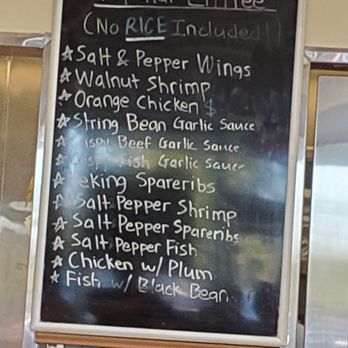 (No RICE Included!)
☆ Salt & Pepper Wings
☆ Walnut Shrimp
☆ Orange Chicken
☆ String Bean Garlic Sauce
☆ Crispy Beef Garlic Sauce
☆ Crispy Fish Garlic Sauce
☆ Peking Spareribs
☆ Salt Pepper Shrimp
☆ Salt Pepper Spareribs
☆ Salt Pepper Fish
☆ Chicken w/ Plum
☆ Fish w/ Black Bean